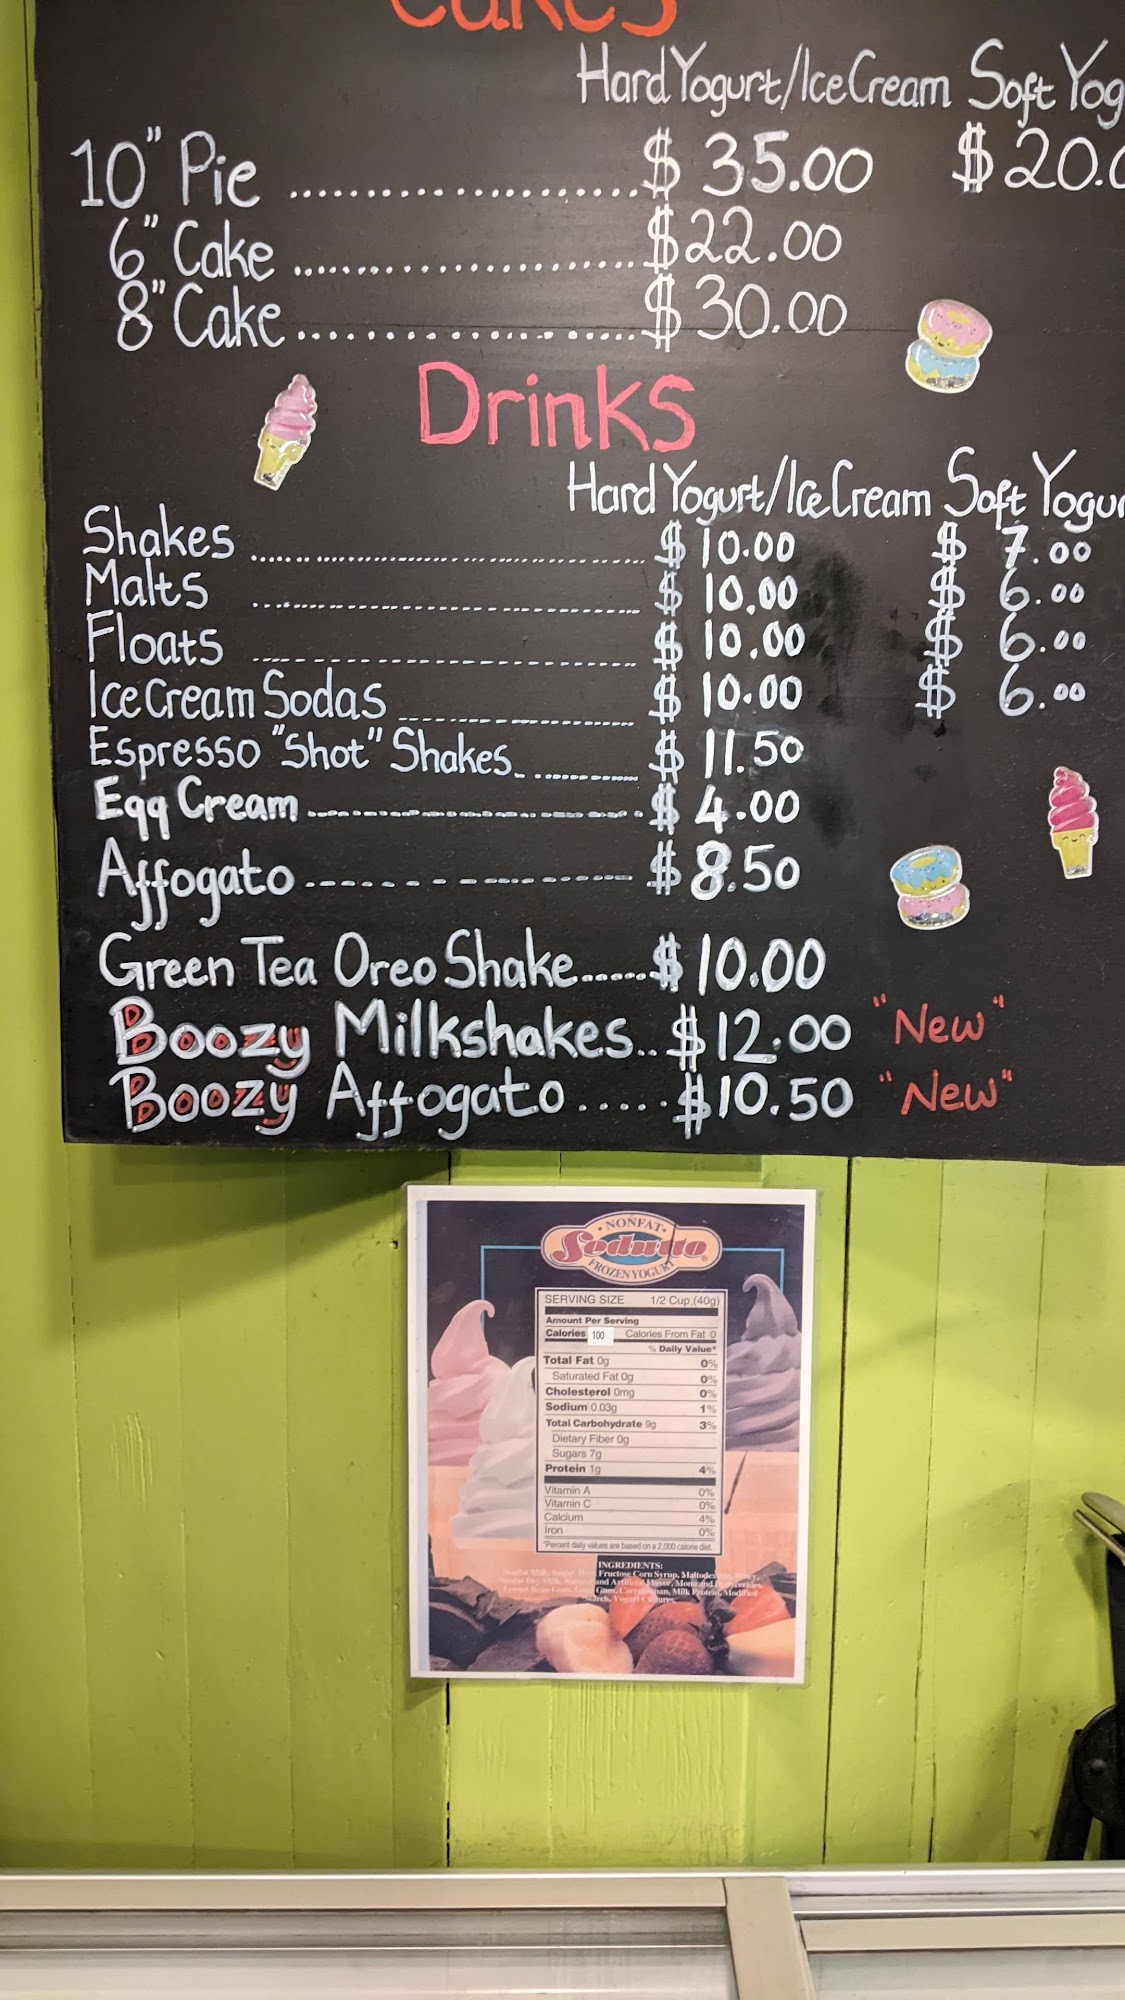 Cakes
Hard Yogurt/Ice Cream Soft Yog
10" Pie .................... $ 35.00 $20.0
6" Cake .................... $22.00
8" Cake .................... $30.00
Drinks
Hard Yogurt/Ice Cream Soft Yogur
Shakes .................... $ 10.00 $ 7.00
Malts .................... $ 10.00 $ 6.00
Floats .................... $ 10.00 $ 6.00
Ice Cream Sodas .................... $ 10.00 $ 6.00
Espresso "Shot" Shakes .......... $ 11.50
Egg Cream .................... $ 4.00
Affogato .................... $ 8.50
Green Tea Oreo Shake.....$ 10.00
Boozy Milkshakes..$12.00 "New"
Boozy Affogato .....$10.50 "New"
NONFAT
Sedutto®
FROZEN YOGURT
SERVING SIZE 1/2 Cup.(40g)
Amount Per Serving
Calories 100 Calories From Fat 0
% Daily Value*
Total Fat 0g 0%
Saturated Fat 0g 0%
Cholesterol 0mg 0%
Sodium 0.03g 1%
Total Carbohydrate 9g 3%
Dietary Fiber 0g
Sugars 7g
Protein 1g 4%
Vitamin A 0%
Vitamin C 0%
Calcium 4%
Iron 0%
*Percent daily values are based on a 2,000 calorie diet.
INGREDIENTS:
Nonfat Milk, Sugar, Fructose Corn Syrup,
Nonfat Dry Milk, and Artificial Flavor, Mono and
Locust Bean Gum, Gum, Milk Protein, Modified
Starch, Yogurt Cultures.